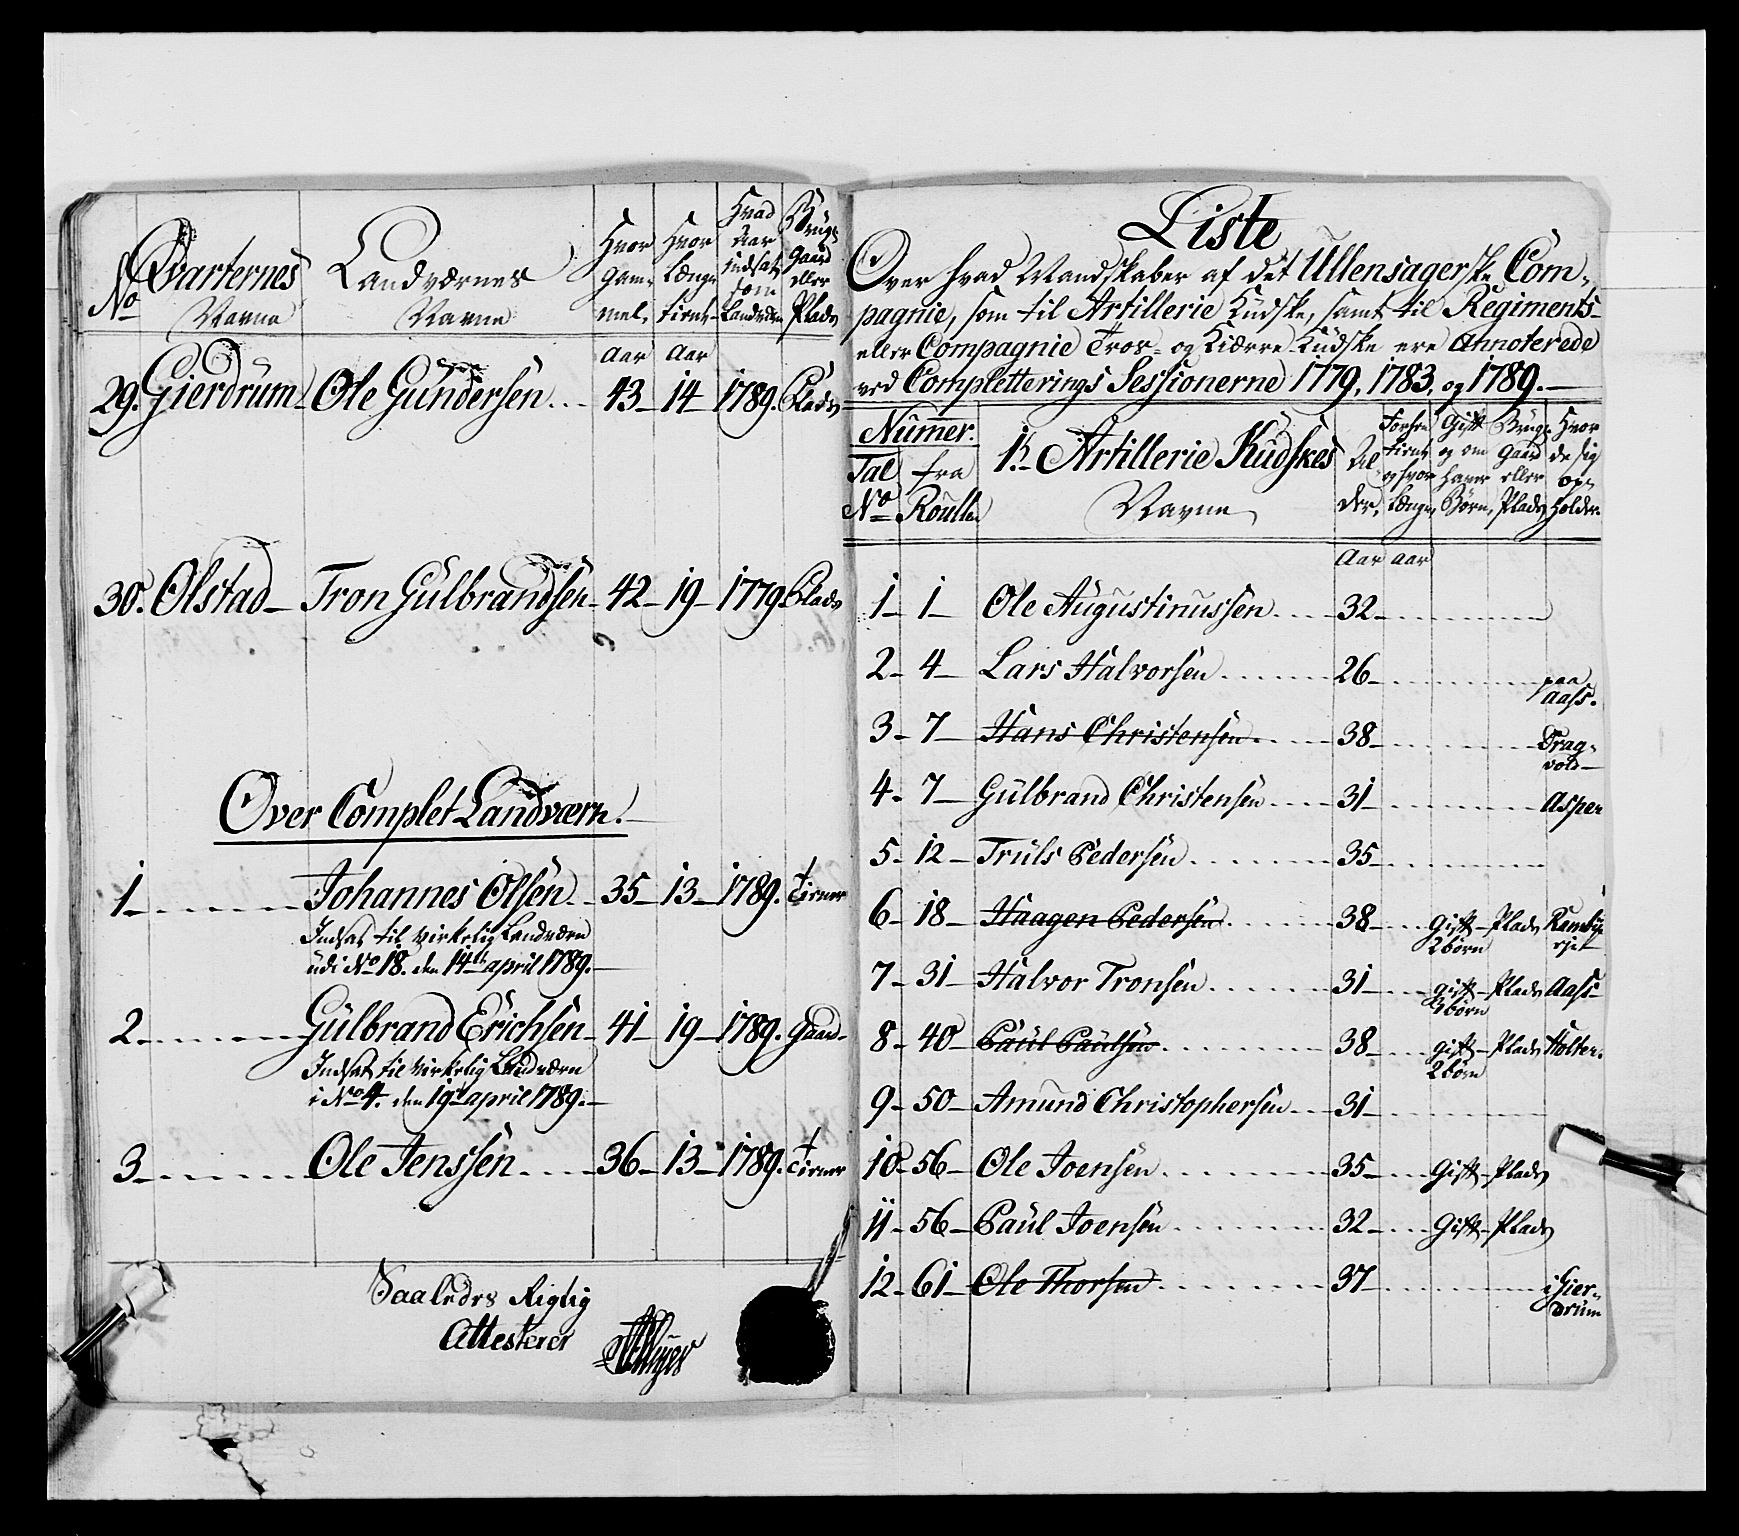 No Qvarternes Navne Landværnes Navne Hvor Gammel Hvor Længe tient Hvad Aar indsat som Landværn Bruger Gaard eller Plads
Aar Aar
29. Gierdrum Ole Gundersen 43 14 1789. Plads
30. Olstad Tron Gulbrandsen 42 19 1779. Plads
Over Complet Landværn.
1 Johannes Olsen 35 13 1789. Tiener
Indsat til virkelig Landværn
udi No 18. den 14de april 1789.
2 Gulbrand Erichsen 41 19 1789. Gaard
Indsat til virkelig Landværn
i No 4. den 19de april 1789.
3 Ole Jenssen 36 13 1789. Tiener
Saaledes Rigtig
Attesterer
Liste
Over hvad Mandskaber af det Ullensagerske Com-
pagnie, som til Artillerie Kudske, samt til Regiments-
eller Compagnie Tros- og Kiærre Kudske ere Annoterede
ved Completterings Sessionerne 1779, 1783, og 1789.
Numer.
Tal No fra Roullen
1. Artillerie Kudskes
Navne
Alder, Forhen tient og hvor Længe, Gift og om haver Børn, Bruger Gaard eller Plads Hvor de sig opholder.
Aar aar
1 1 Ole Augustinussen 32
2 4 Lars Halvorsen 26 paa Aass.
3 7 Hans Christensen 38 Dragvold
4 7 Gulbrand Christensen 31 Asper
5 12 Truls Pedersen 35
6 18 Haagen Pedersen 38 Gift 2 børn Plads
7 31 Halvor Tronsen 31 gift børn Plads Aass
8 40 Paul Paulsen 38 gift 2 børn Plads Holter.
9 50 Amund Christophersen 31
10 56 Ole Joensen 35 Gift Plads
11 56 Paul Joensen 32 Gift Plads
12 61 Ole Thorsen 37 i Gierdrum